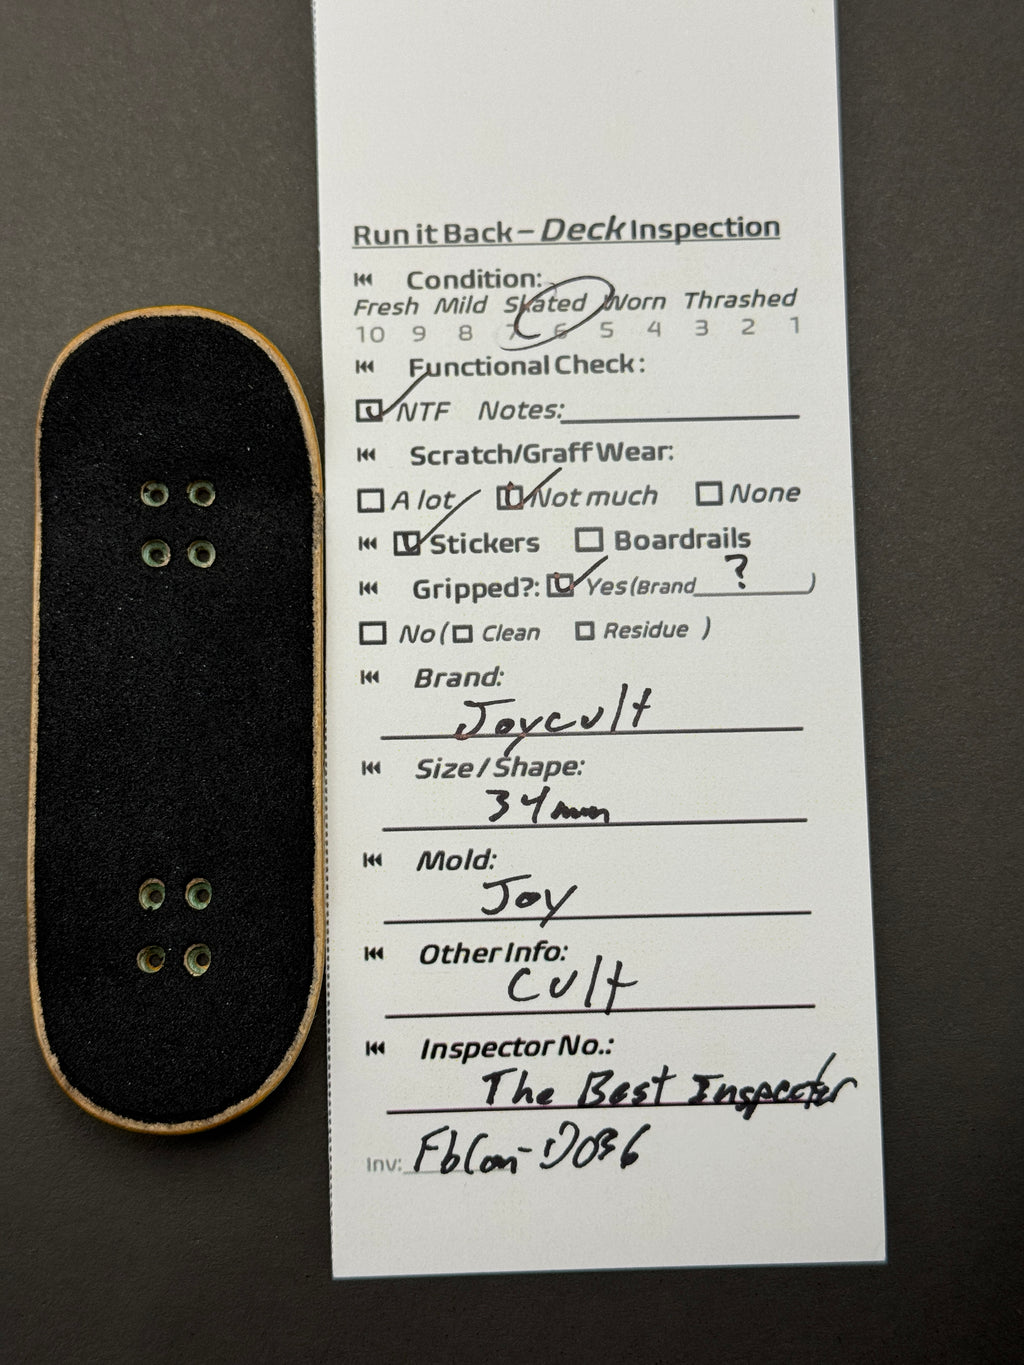 Run it Back – Deck Inspection
Condition:
Fresh Mild Skated Worn Thrashed
10 9 8 7 6 5 4 3 2 1
Functional Check:
NTF Notes:
Scratch/Graff Wear:
A lot Not much None
Stickers Boardrails
Gripped?: Yes (Brand ? )
No ( Clean Residue )
Brand:
Joycult
Size / Shape:
34mm
Mold:
Joy
Other Info:
Cult
Inspector No.:
The Best Inspector
Inv: FbCon-D036